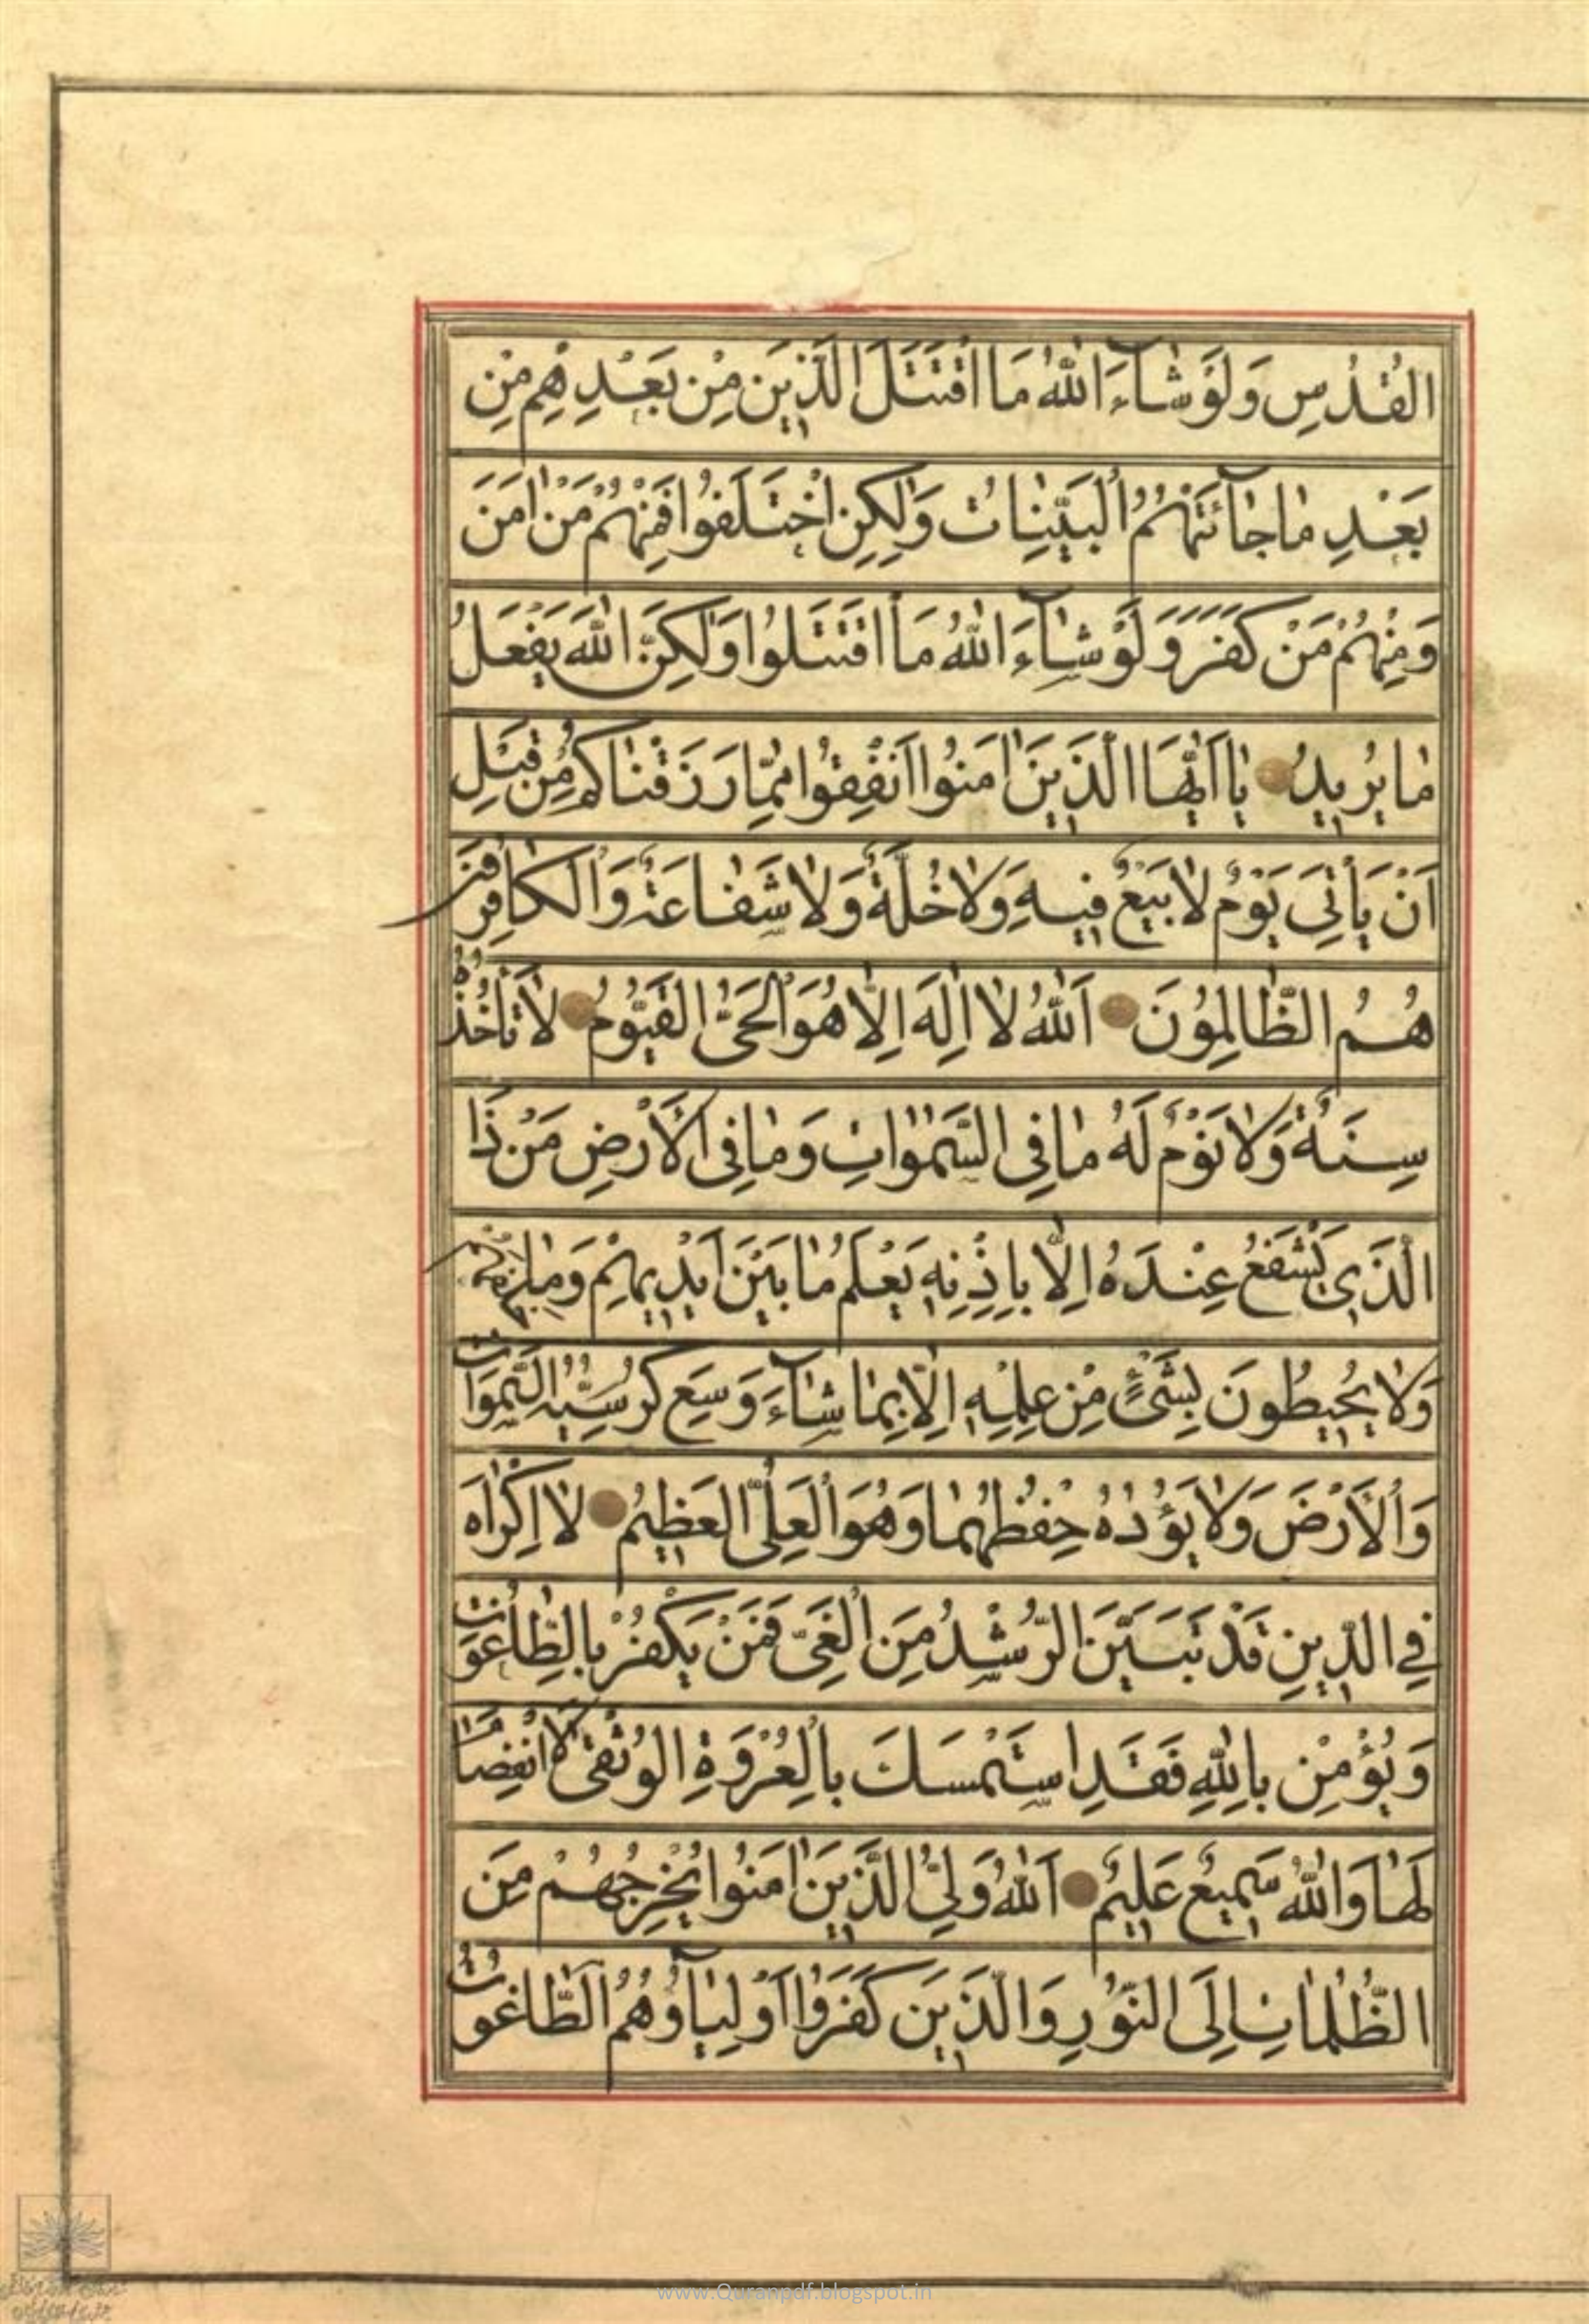 القُدُسِ وَلَوْ شَآءَ اللّٰهُ مَا اقْتَتَلَ الَّذِينَ مِنْ بَعْدِهِمْ مِنْ
بَعْدِ مٰا جٰآئَتْهُمُ الْبَيِّنٰاتُ وَلٰكِنِ اخْتَلَفُوا فَمِنْهُمْ مَنْ اٰمَنَ
وَمِنْهُمْ مَنْ كَفَرَ وَلَوْ شٰآءَ اللّٰهُ مَا اقْتَتَلُوا وَلٰكِنَّ اللّٰهَ يَفْعَلُ
مٰا يُرِيدُ يٰا اَيُّهَا الَّذِينَ اٰمَنُوا اَنْفِقُوا مِمّٰا رَزَقْنٰاكُمْ مِنْ قَبْلِ
اَنْ يَأْتِيَ يَوْمٌ لٰا بَيْعٌ فِيهِ وَلٰا خُلَّةٌ وَلٰا شَفٰاعَةٌ وَالْكٰافِرُونَ
هُمُ الظّٰالِمُونَ اَللّٰهُ لٰا اِلٰهَ اِلّٰا هُوَ الْحَيُّ الْقَيُّومُ لٰا تَأْخُذُهُ
سِنَةٌ وَلٰا نَوْمٌ لَهُ مٰا فِي السَّمٰوٰاتِ وَمٰا فِي الْاَرْضِ مَنْ ذَا
الَّذِي يَشْفَعُ عِنْدَهُ اِلّٰا بِاِذْنِهِ يَعْلَمُ مٰا بَيْنَ اَيْدِيهِمْ وَمٰا خَلْفَهُمْ
وَلٰا يُحِيطُونَ بِشَيْءٍ مِنْ عِلْمِهِ اِلّٰا بِمٰا شٰآءَ وَسِعَ كُرْسِيُّهُ السَّمٰوَاتِ
وَالْاَرْضَ وَلٰا يَؤُدُهُ حِفْظُهُمٰا وَهُوَ الْعَلِيُّ الْعَظِيمُ لٰا اِكْرٰاهَ
فِي الدِّينِ قَدْ تَبَيَّنَ الرُّشْدُ مِنَ الْغَيِّ فَمَنْ يَكْفُرْ بِالطّٰاغُوتِ
وَيُؤْمِنْ بِاللّٰهِ فَقَدِ اسْتَمْسَكَ بِالْعُرْوَةِ الْوُثْقٰى لَا انْفِصٰامَ
لَهٰا وَاللّٰهُ سَمِيعٌ عَلِيمٌ اَللّٰهُ وَلِيُّ الَّذِينَ اٰمَنُوا يُخْرِجُهُمْ مِنَ
الظُّلُمٰاتِ اِلَى النُّورِ وَالَّذِينَ كَفَرُوا اَوْلِيٰآؤُهُمُ الطّٰاغُوتُ
www.Quranpdf.blogspot.in